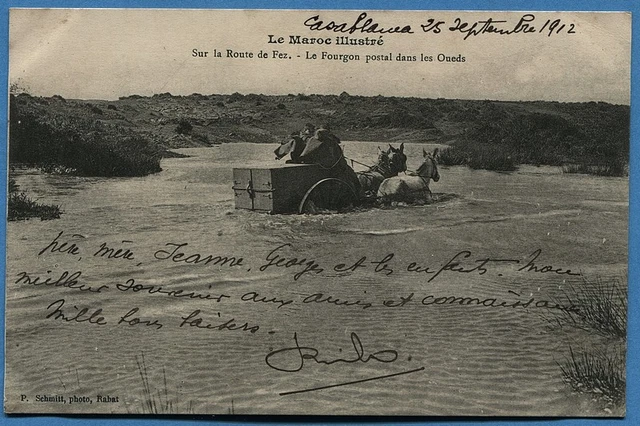 Casablanca 25 Septembre 1912
Le Maroc illustré
Sur la Route de Fez. - Le Fourgon postal dans les Oueds
père, mère, Jeanne, Georges et les enfants. Mon
meilleur souvenir aux amis et connaissances
Mille bons baisers.
P. Schmitt, photo, Rabat